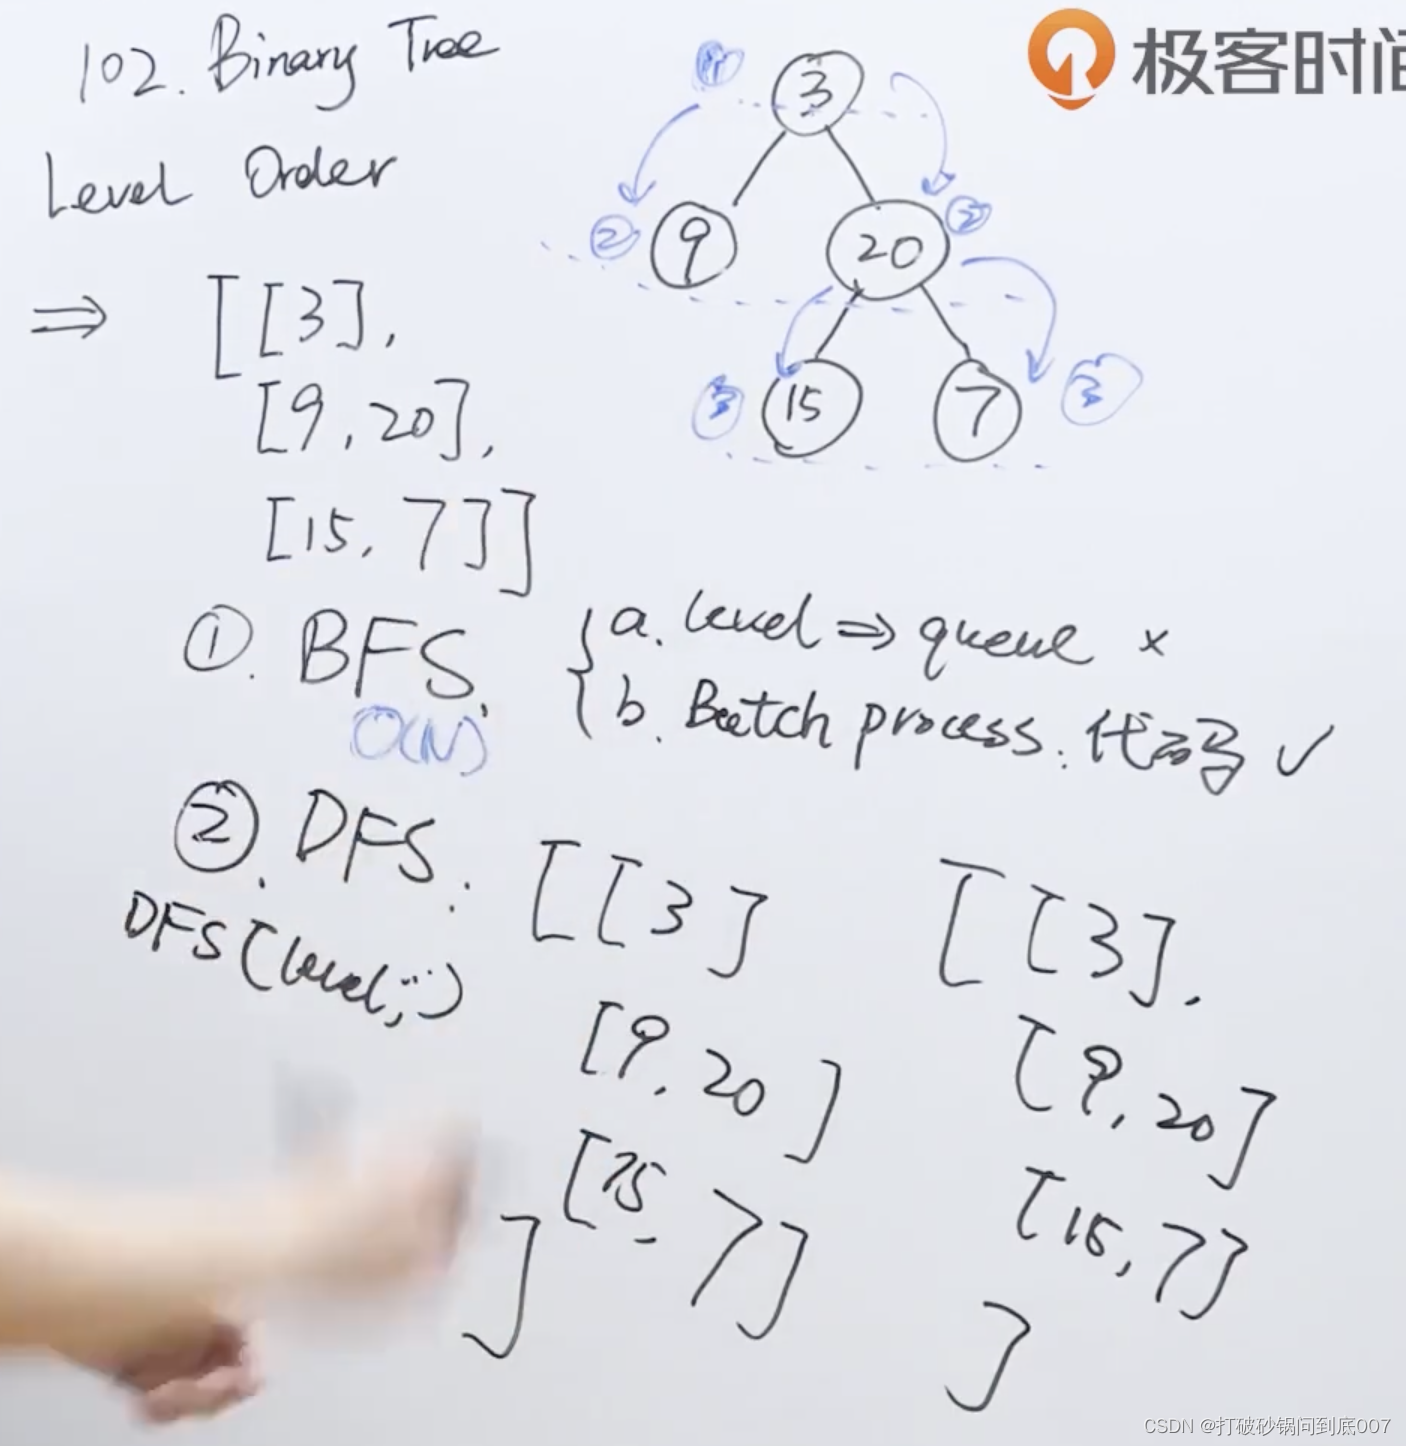 102. Binary Tree
Level Order
⇒ [[3],
[9, 20],
[15, 7]]
极客时间
3
9 20
15 7
1
② ②
3 3
①. BFS.
O(N)
a. level ⇒ queue ×
b. Batch process. 代码 ✓
②. DFS:
DFS(level, ...)
[[3]
[9, 20]
[15, 7]
]
[[3],
[9, 20]
[15, 7]
]
CSDN @打破砂锅问到底007